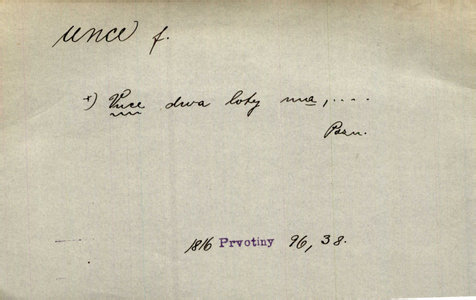 unce f.
*) Vnce dwa loty ma, ....
Pozn.
1816 Prvotiny 96, 38.